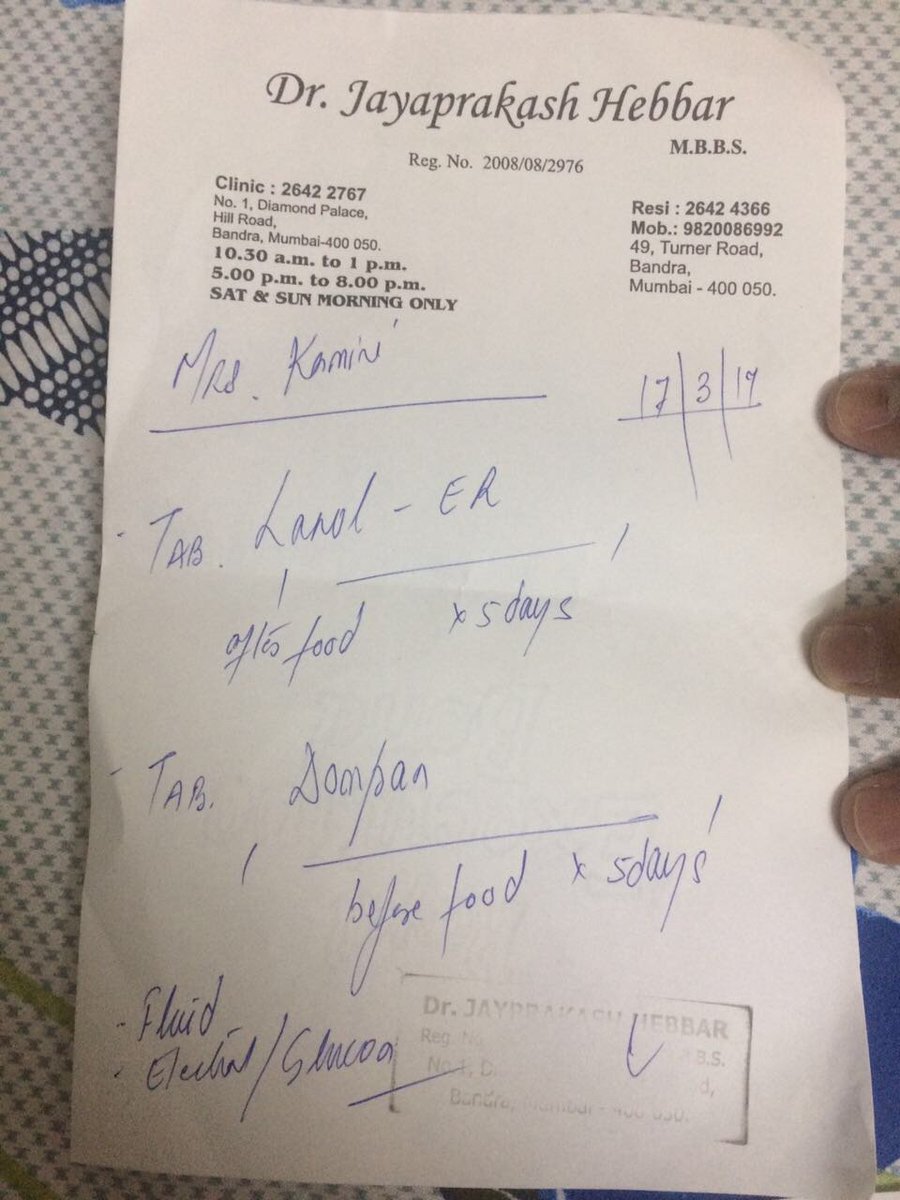 Dr. Jayaprakash Hebbar
M.B.B.S.
Reg. No. 2008/08/2976
Clinic : 2642 2767
No. 1, Diamond Palace,
Hill Road,
Bandra, Mumbai-400 050.
10.30 a.m. to 1 p.m.
5.00 p.m. to 8.00 p.m.
SAT & SUN MORNING ONLY
Resi : 2642 4366
Mob.: 9820086992
49, Turner Road,
Bandra,
Mumbai - 400 050.
Mrs. Kamini
17/3/19
- TAB. Lanol - ER
1 ——— 1
after food x 5 days
- TAB. Dompan
1 ——— 1
before food x 5 days
- Fluid
- Electral / Glucon
Dr. JAYPRAKASH HEBBAR
Reg. No. B.S.
No. 1, D d,
Bandra, Mumbai - 400 050.